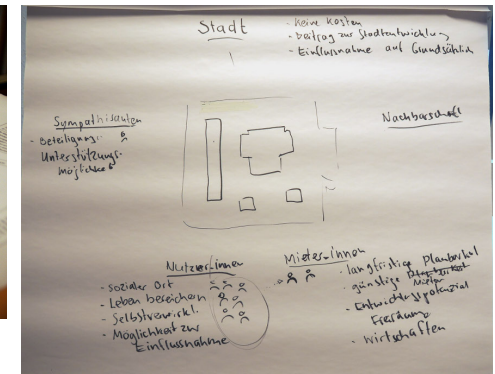 Stadt
- Keine Kosten
- Beitrag zur Stadtentwicklu
- Einflussnahme auf Grundsätzlich
Sympathisanten
- Beteiligungs-
Unterstützungs-
möglichkeit
Nachbarschaft
Nutzer_innen
- sozialer Ort
- Leben bereichern
- Selbstverwirkl.
- Möglichkeit zur
Einflussnahme
Mieter_innen
- langfristige Planbarkeit
- günstige Miete
- Entwicklungspotenzial
Freiräume
- wirtschaften